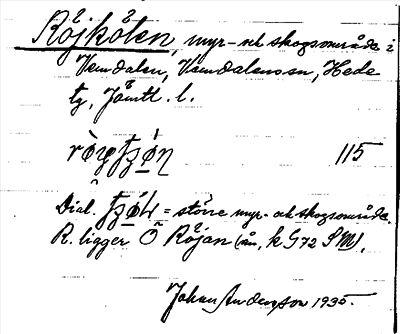 Röjköten, myr- och skogsområde i
Vemdalen, Vemdalens sn, Hede
tg, Jämtl. l.
115
Dial. = större myr- och skogsområde.
R. ligger Ö Röjan (ån, k G72 SM),
Johan Anderzson 1935.